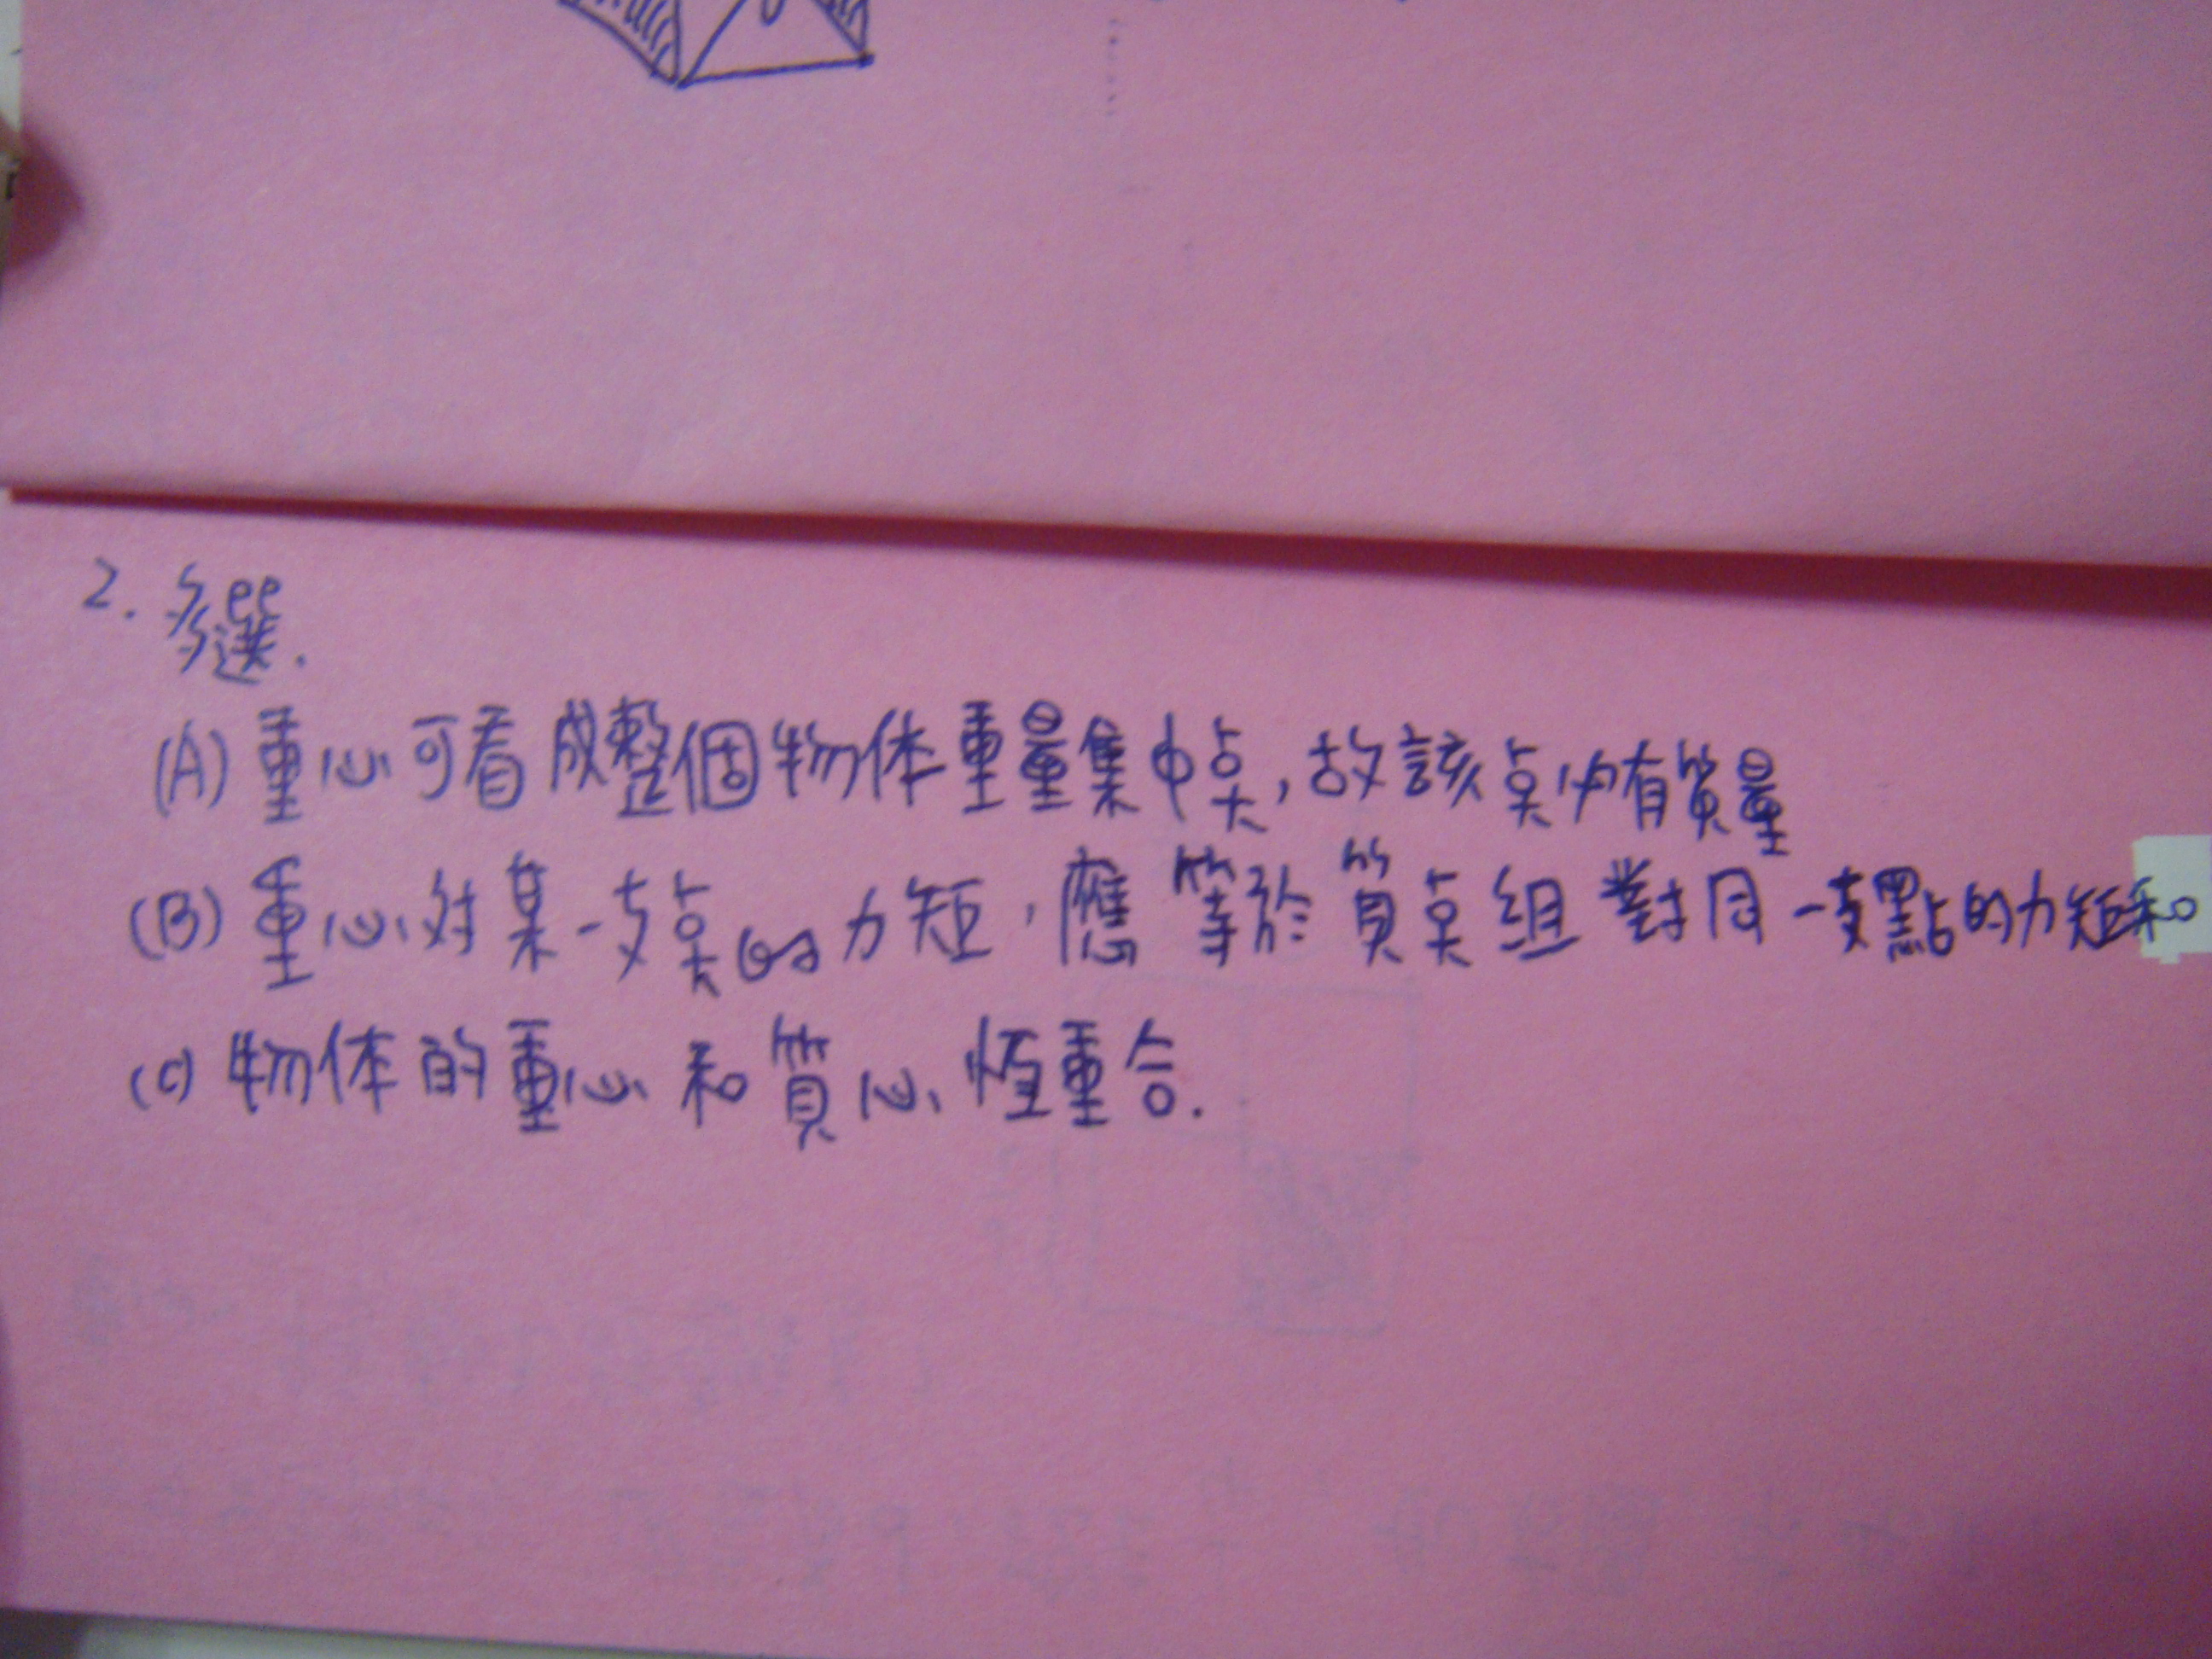 2. 多選.
(A) 重心可看成整個物体重量集中点, 故該点必有質量
(B) 重心对某一支点的力矩, 應等於質点組對同一支點的力矩和
(C) 物体的重心和質心恆重合.